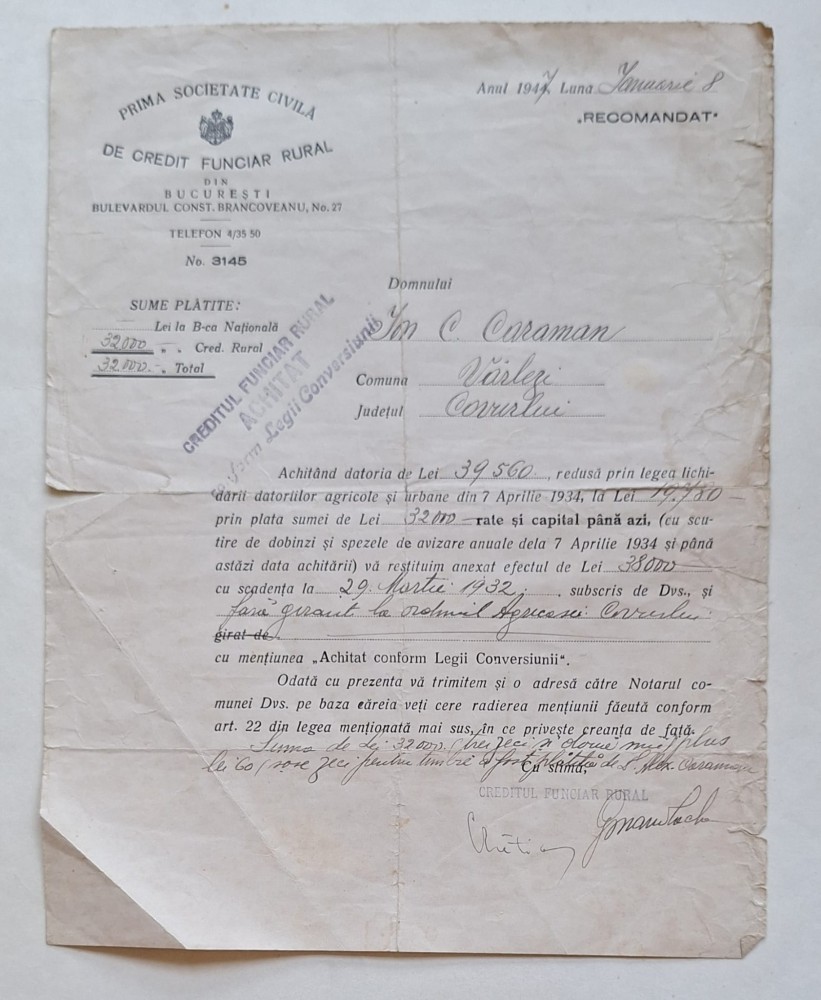 PRIMA SOCIETATE CIVILĂ
DE CREDIT FUNCIAR RURAL
DIN
BUCUREȘTI
BULEVARDUL CONST. BRANCOVEANU, No. 27
TELEFON 4/35 50
No. 3145
Anul 1947, Luna Ianuarie 8
„RECOMANDAT"
SUME PLĂTITE:
Lei la B-ca Națională
32000 „ „ Cred. Rural
32000.- „ Total
CREDITUL FUNCIAR RURAL
ACHITAT
Legii Conversiunii
Domnului
Ion C. Caraman
Comuna Vârlezi
Județul Covurlui
Achitând datoria de Lei 39560, redusă prin legea lichi-
dării datoriilor agricole și urbane din 7 Aprilie 1934, la Lei 19.780
prin plata sumei de Lei 32000 rate și capital până azi, (cu scu-
tire de dobinzi și spezele de avizare anuale dela 7 Aprilie 1934 și până
astăzi data achitării) vă restituim anexat efectul de Lei 38000
cu scadența la 29 Martie 1932, subscris de Dvs., și
fară girant la ordinul Agricolei Covurlui
girat de
cu mențiunea „Achitat conform Legii Conversiunii".
Odată cu prezenta vă trimitem și o adresă către Notarul co-
munei Dvs. pe baza căreia veți cere radierea mențiunii făcută conform
art. 22 din legea menționată mai sus, în ce privește creanța de față.
Suma de Lei 32000 (treizeci și doue mii) plus
lei 60 (șase zeci pentru timbre a fost plătită de Dl. Alex. Caraman
Cu stimă,
CREDITUL FUNCIAR RURAL